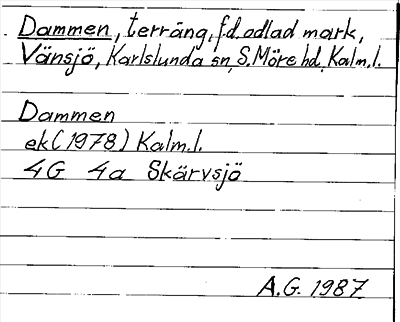 Dammen, terräng, f.d. odlad mark,
Vänsjö, Karlslunda sn, S. Möre hd, Kalm. l.
Dammen
ek (1978) Kalm. l.
4G 4a Skärvsjö
A.G. 1987